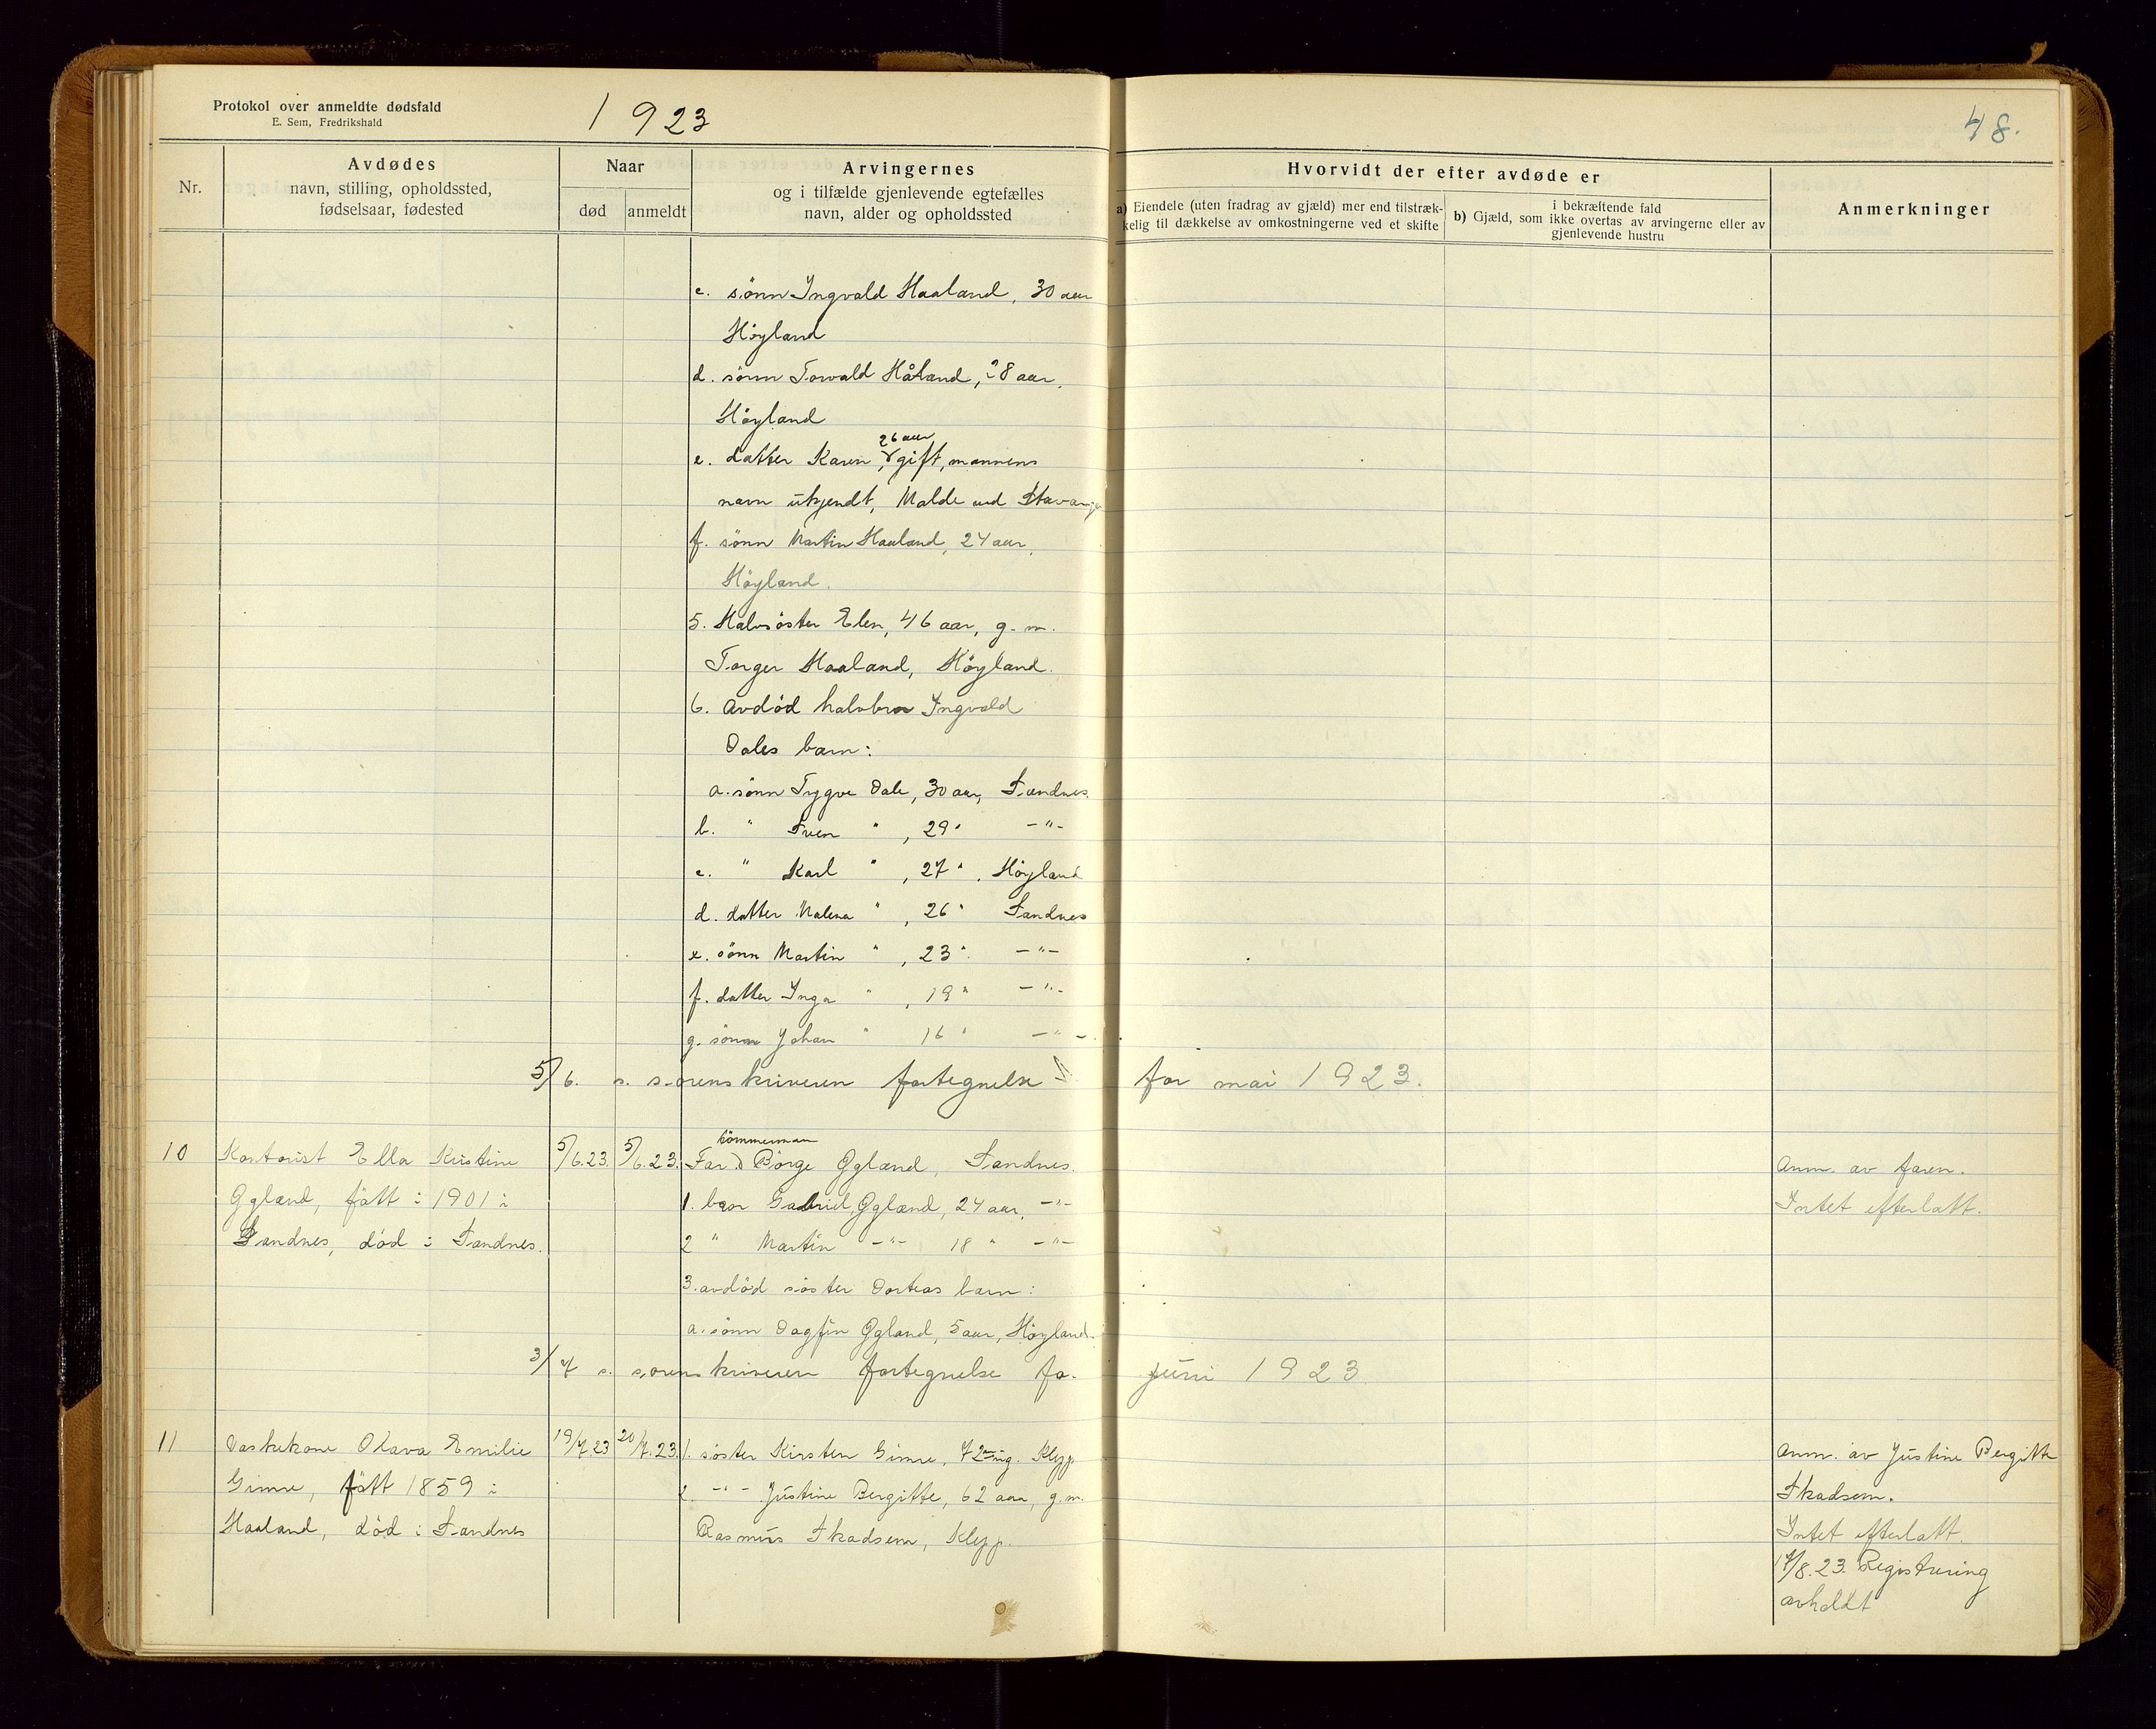 Protokol over anmeldte dødsfald
E. Sem, Fredrikshald
1923
48.
Nr.
Avdødes
navn, stilling, opholdssted,
fødselsaar, fødested
Naar
død
anmeldt
Arvingernes
og i tilfælde gjenlevende egtefælles
navn, alder og opholdssted
Hvorvidt der efter avdøde er
a) Eiendele (uten fradrag av gjæld) mer end tilstræk-
kelig til dækkelse av omkostningerne ved et skifte
i bekræftende fald
b) Gjæld, som ikke overtas av arvingerne eller av
gjenlevende hustru
Anmerkninger
c. sönn Ingvald Haaland, 30 aar
Höyland
d. sönn Torvald Håland, 28 aar,
Höyland
26 aar
e. datter Karen, gift, mannens
navn ukjendt, Malde ved Stavanger
f. sönn Martin Haaland, 24 aar,
Höyland.
5. Halvsöster Elen, 46 aar, g. m.
Torger Haaland, Höyland.
6. Avdöd halvbror Ingvald
Dales barn:
a. sönn Trygve Dale, 30 aar, Sandnes.
b. " Sven " , 29 " -"-
c. " Karl " , 27 " , Höyland
d. datter Malena " , 26 " Sandnes
e. sönn Martin " , 23 " -"-
f. datter Inga " , 19 " -"-
g. sönn Johan " 16 " -"-
5/6. s. sorenskriveren fortegnelse for mai 1923.
10 Kontorist Ella Kristine 5/6.23. 5/6.23. Far: Börge Ogland, Sandnes. Anm. av faren.
tömmerman
Ogland, född i 1901 i 1. bror Gabriel Ogland, 24 aar, -"- Intet efterlatt.
Sandnes, död i Sandnes. 2 " Martin -"- 18 " -"-
3. avdöd söster Dorteas barn:
a. sönn Dagfin Ogland, 5 aar, Höyland.
3/7 s. sorenskriveren fortegnelse for juni 1923
11 Vaskekone Olava Emilie 19/7.23 20/7.23. 1. söster Kirsten Gimre, 72 aar ug. Klepp. Anm. av Justine Bergitte
Gimre, fött 1859 i 2. -"- Justine Bergitte, 62 aar, g. m. Skadsem.
Haaland, död i Sandnes Rasmus Skadsem, Klepp. Intet efterlatt.
17/8.23. Registrering
avholdt